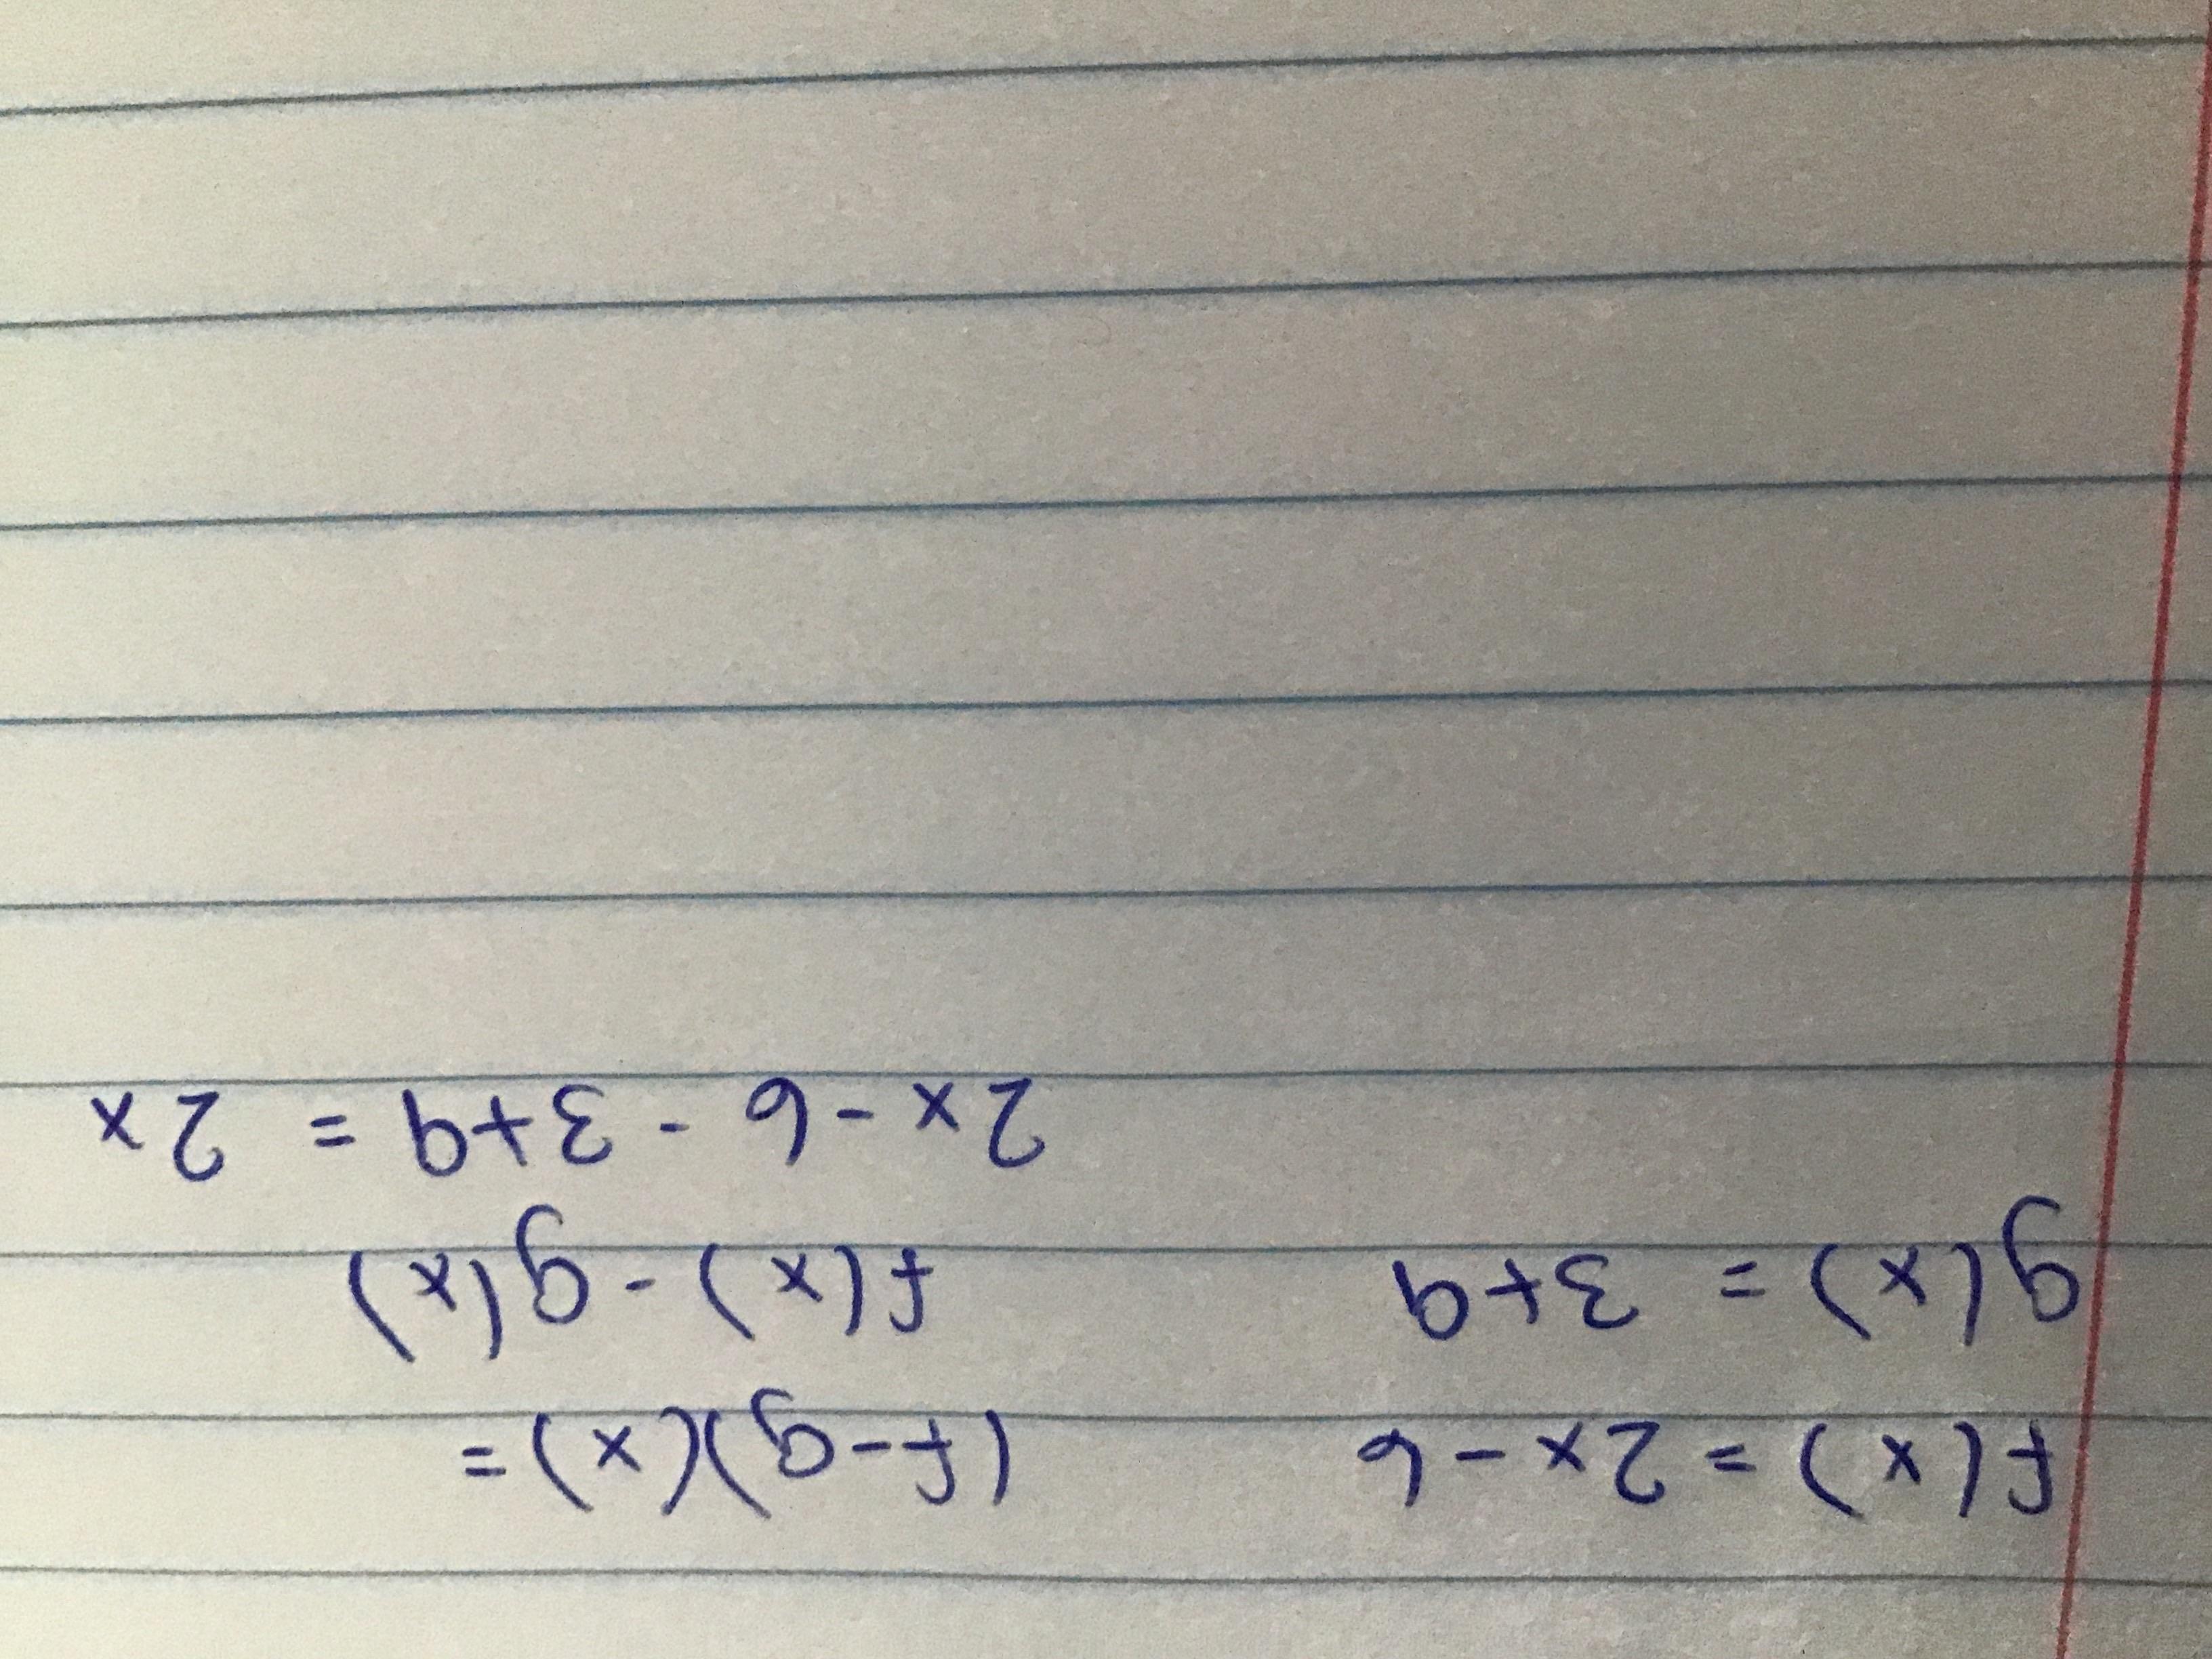 f(x) = 2x - 6
g(x) = 3+9
(f-g)(x) =
f(x) - g(x)
2x - 6 - 3+9 = 2x